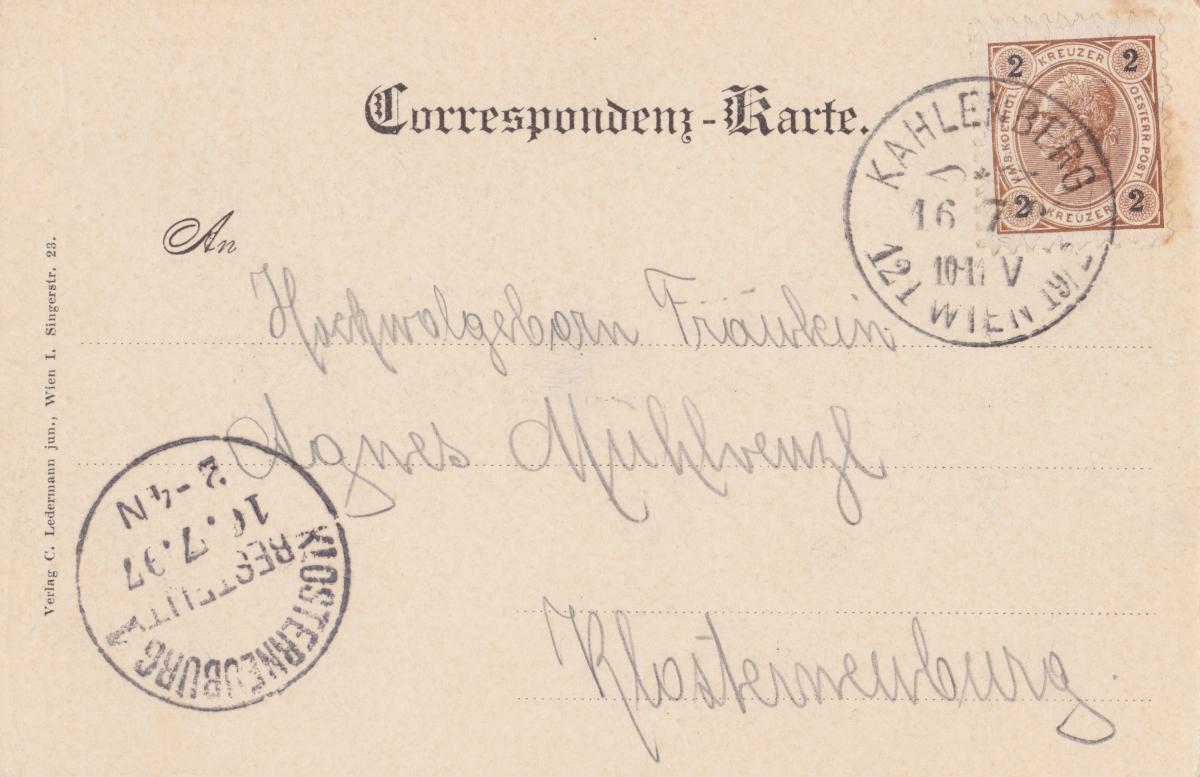 Correspondenz-Karte.
2 KREUZER 2
KAIS. KOENIGL. OESTERR. POST
2 KREUZER 2
KAHLENBERG
16 7
10-11 V
WIEN 19/2
121
An
Hochwolgeborn Fräulein
Agnes Mühlvenzl
Klosterneuburg.
2-4N
16.7.97
BESTELLT
KLOSTERNEUBURG 1
Verlag C. Ledermann jun., Wien I. Singerstr. 23.